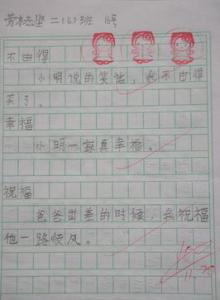 二(6)班
不由得
小明说的笑话，我不由得
笑了。
幸福
小明一家真幸福。
祝福
爸爸出差的时候，我祝福
他一路顺风。